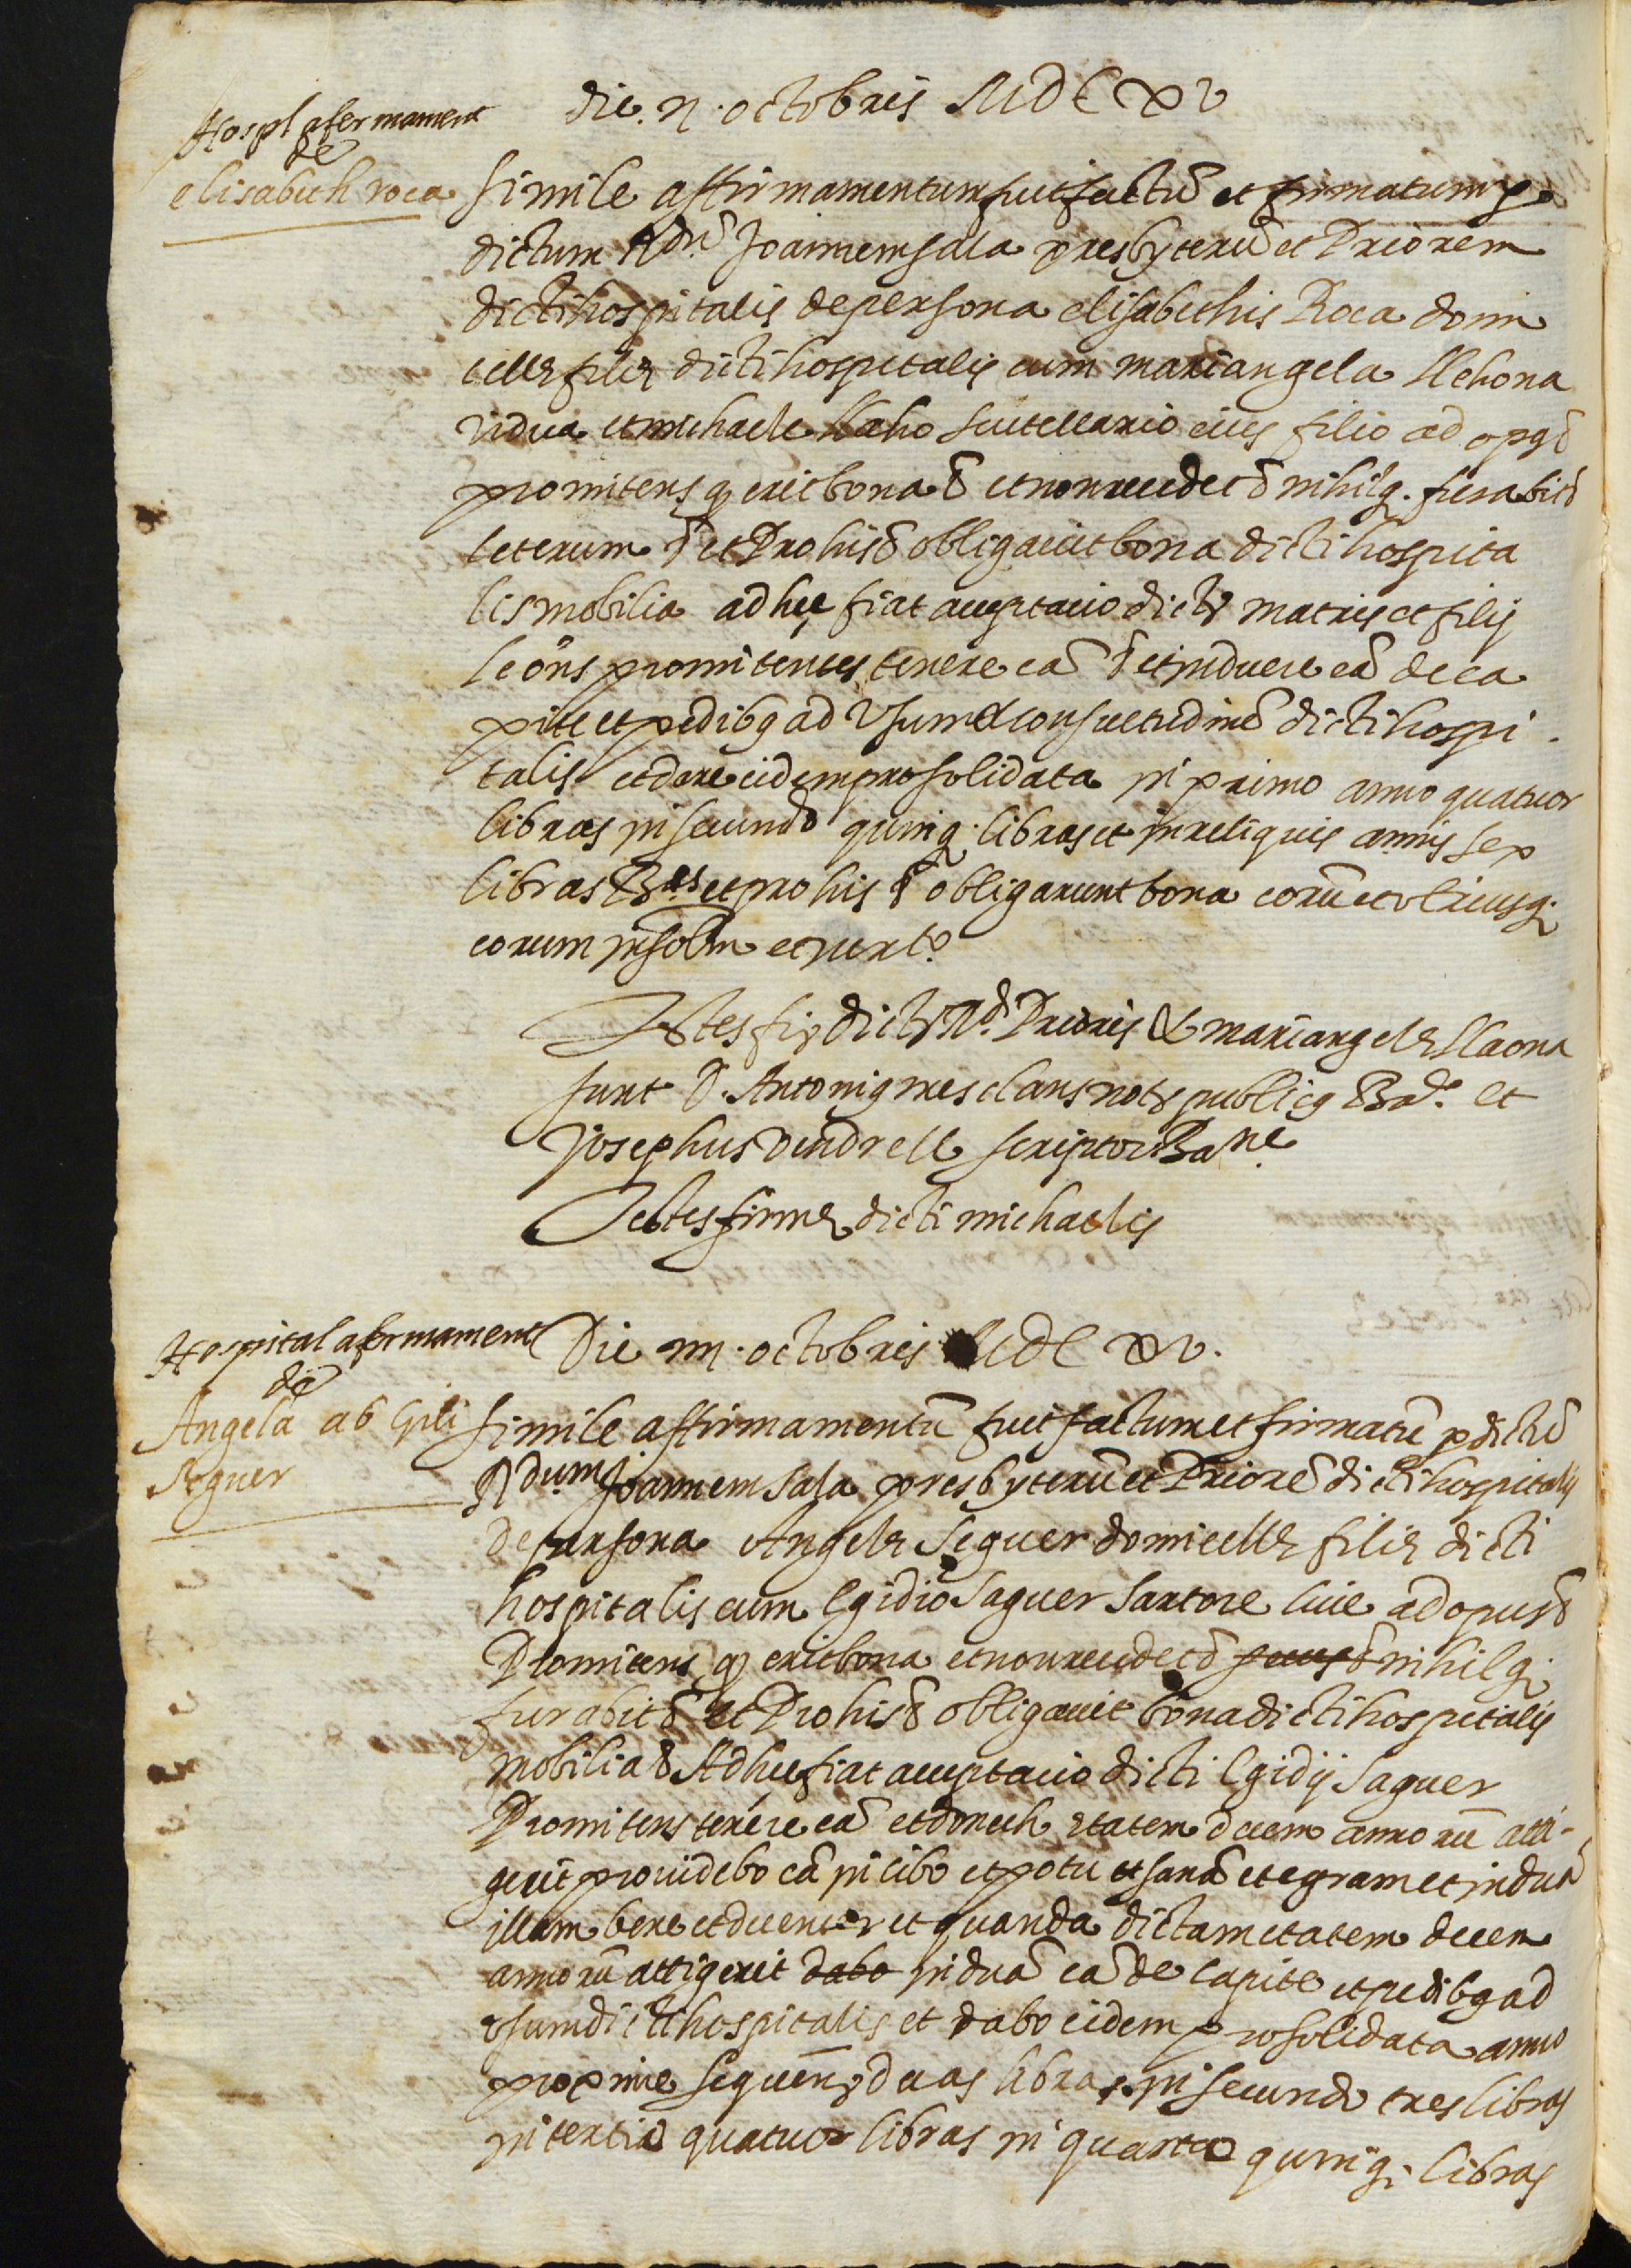 die. n. octobris MDCXV
Hospl afermament
de
elisabeth roca
simile affirmamentum fuit factū et firmatum p
dictum Rdū Joannem sala presbyterū et Priorem
dicti hospitalis de persona elisabethis Roca domi
cellę filię dicti hospitalis cum mariangela llehona
vidua et michaele llaho scutellario eius filio ad opus &
promitens q erit bona & et non recedet & nihilq. furabit &
ceterum & et Pro his & obligavit bona dicti hospita
lis mobilia ad hec fiat acceptacio dictę matris et filij
promitentes tenere eā & et induere eā de ca
pite et pedibq ad usum et consuetudinē dicti hospi
talis et dare eidem pro solidata in primo anno quatuor
libras in secundo quinq. libras et in reliquis annis sex
libras Bas et pro his & obligarunt bona eorū et utriusq.
eorum insolm et jurto
Testes fię dictę Rd. Prioris & mariangelę llaona
sunt D. Antonig mesclans notę publicq Bae. et
Josephus vendrell scriptor Bane
Testes firmę dicti michaelis
Hospital afermament
de
Angela ab Gili
Seguer
Die nn. octobris MDCXV.
simile affirmamentū fuit factum et firmatū p dictū
Rdum Joannem Sala presbyterū et Priorē dicti hospitalis
de persona Angelę Seguer domicellę filię dicti
hospitalis cum Egidio Saguer Sartore Cive ad opus &
Promitens q erit bona et non recedet & nihilq.
furabit & et Pro his & obligavit bona dicti hospitalis
mobilia & Ad hec fiat acceptacio dicti Egidij Saguer
Promitens tenere eā et donech ętatem decem annorū atti-
gerit providebo eā in cibo et potu et sanā et egram et induā
illam bene et decenter et quanda dictam etatem decem
annorū attigerit dabo induā eā de capite et pedibq ad
usum dicti hospitalis et dabo eidem pro solidata anno
proxime sequenę duas libras in secundo tres libras
in tertio quatuor libras in quarto quinq. libras